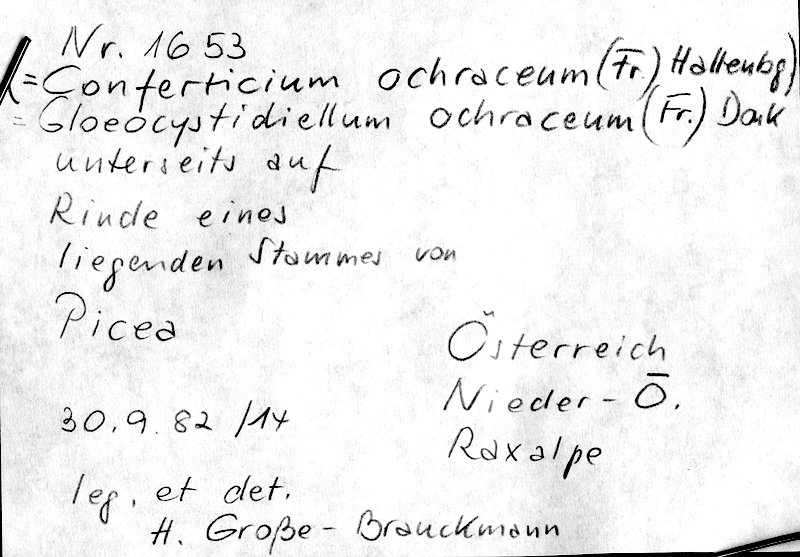 Nr. 1653
(= Conferticium ochraceum (Fr.) Hallenbg)
= Gloeocystidiellum ochraceum (Fr.) Donk
unterseits auf
Rinde eines
liegenden Stammes von
Picea
Österreich
Nieder-Ö.
Raxalpe
30.9.82 /14
leg. et det.
H. Große-Brauckmann